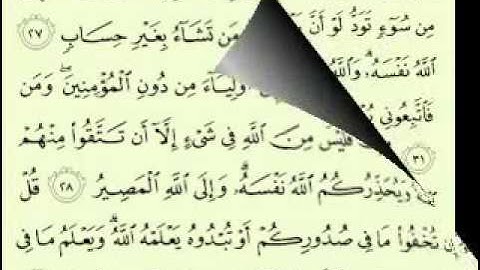 مِن سُوٓءٍ تَوَدُّ لَوْ أَنَّ مَن تَشَآءُ بِغَيْرِ حِسَابٍ ٢٧
ٱللَّهُ نَفْسَهُۥ وَٱللَّهُ أَوْلِيَآءَ مِن دُونِ ٱلْمُؤْمِنِينَ وَمَن
فَٱتَّبِعُونِى فَلَيْسَ مِنَ ٱللَّهِ فِى شَىْءٍ إِلَّآ أَن تَتَّقُوا۟ مِنْهُمْ
٣١ وَيُحَذِّرُكُمُ ٱللَّهُ نَفْسَهُۥ وَإِلَى ٱللَّهِ ٱلْمَصِيرُ ٢٨ قُلْ
إِن تُخْفُوا۟ مَا فِى صُدُورِكُمْ أَوْ تُبْدُوهُ يَعْلَمْهُ ٱللَّهُ وَيَعْلَمُ مَا فِى